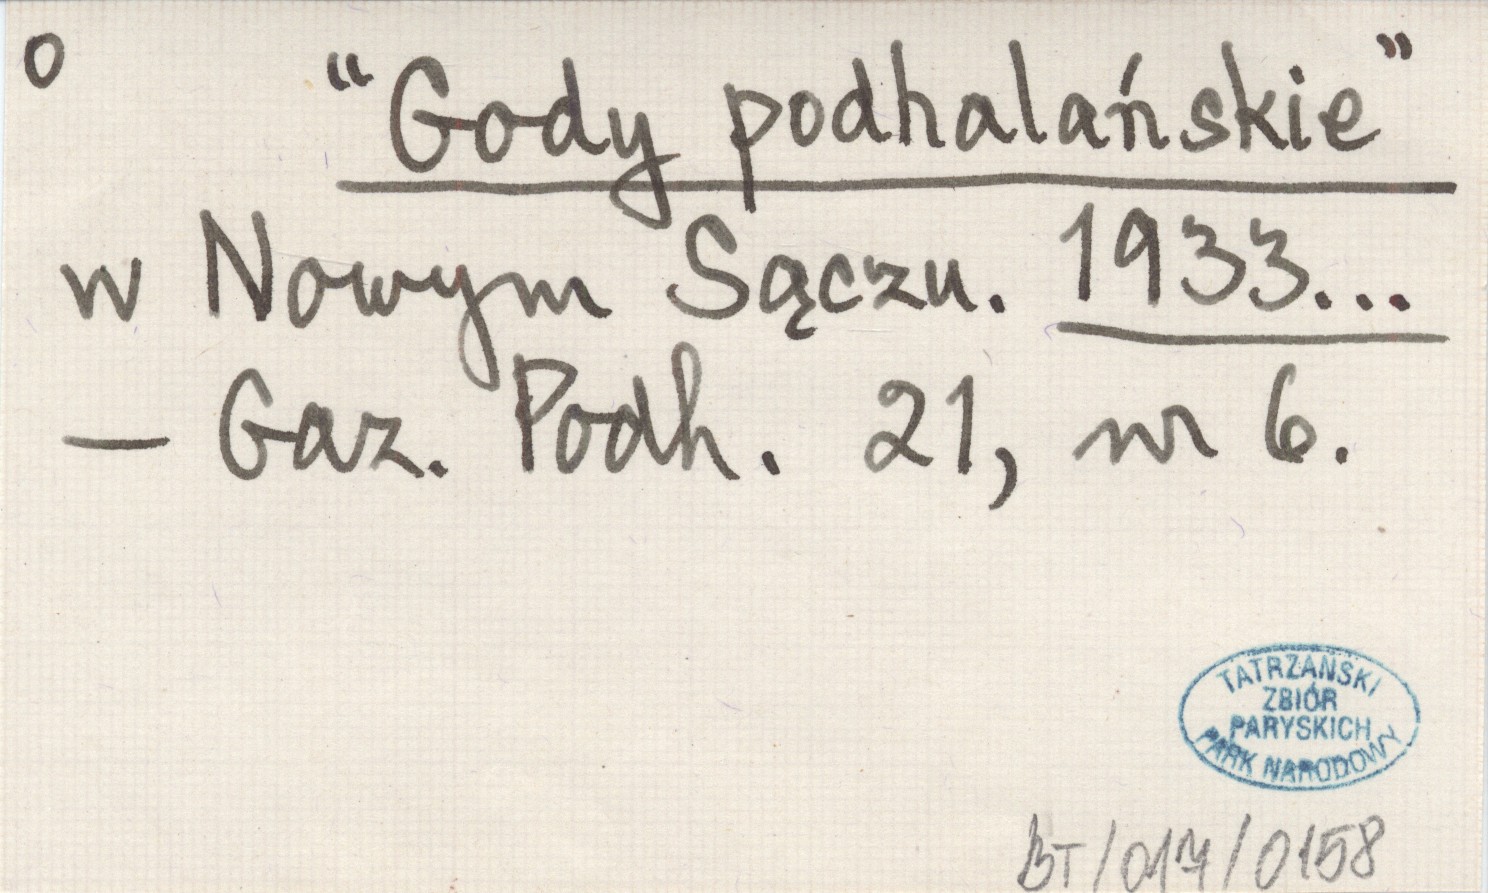 o "Gody podhalańskie"
w Nowym Sączu. 1933...
— Gaz. Podh. 21, nr 6.
TATRZAŃSKI
ZBIÓR
PARYSKICH
PARK NARODOWY
BT/017/0158